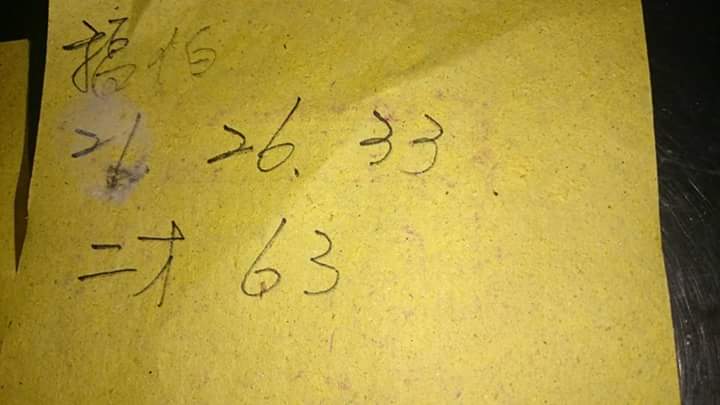 福伯
21. 26. 33
二才 63